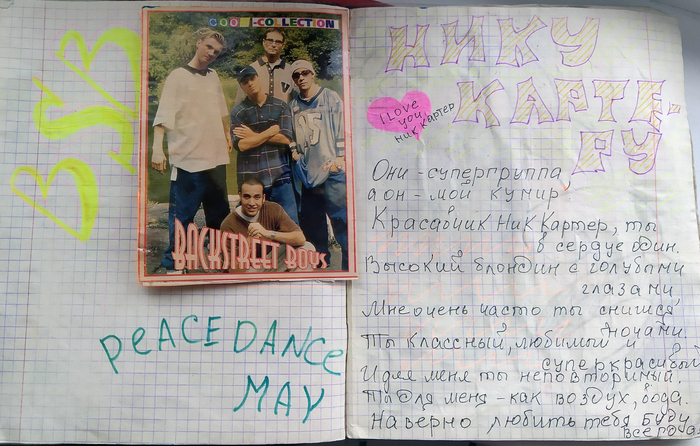 BSB
COOL-COLLECTION
BACKSTREET BOYS
PEACE DANCE
MAY
НИКУ
КАРТЕ-
РУ
I Love
you,
Ник Картер
Они - супергруппа
а он - мой кумир
Красавчик Ник Картер, ты
в сердце один.
Высокий блондин с голубыми
глазами
Мне очень часто ты снишся
ночами.
Ты классный, любимый и
суперкрасивый
И для меня ты неповторимый.
Ты для меня - как воздух, вода.
Наверно любить тебя буду
все года